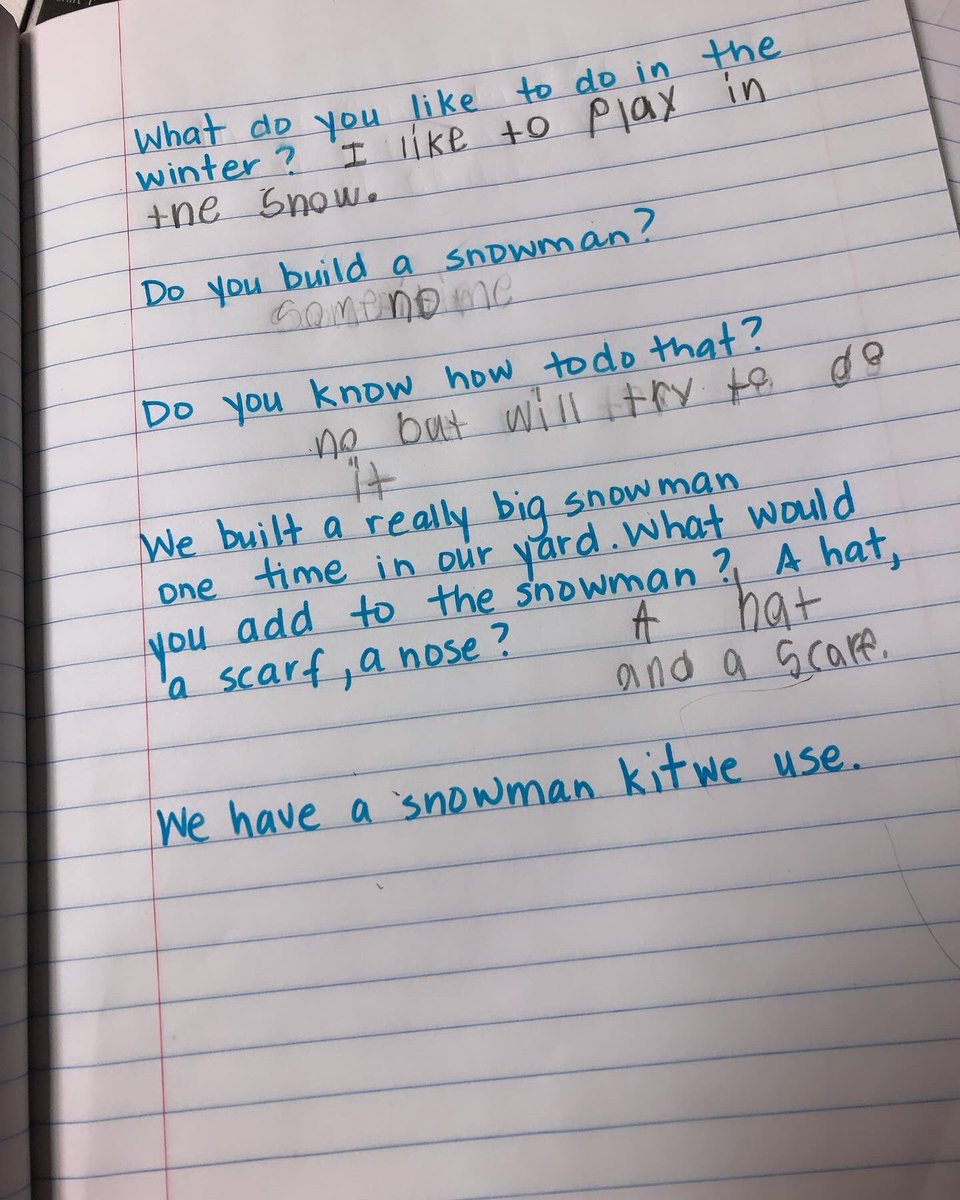 What do you like to do in the
winter? I like to play in
the snow.
Do you build a snowman?
no
Do you know how to do that?
no but will try to do
it
We built a really big snowman
one time in our yard. What would
you add to the snowman? A hat,
a scarf, a nose?
A hat
and a scarf.
We have a snowman kit we use.